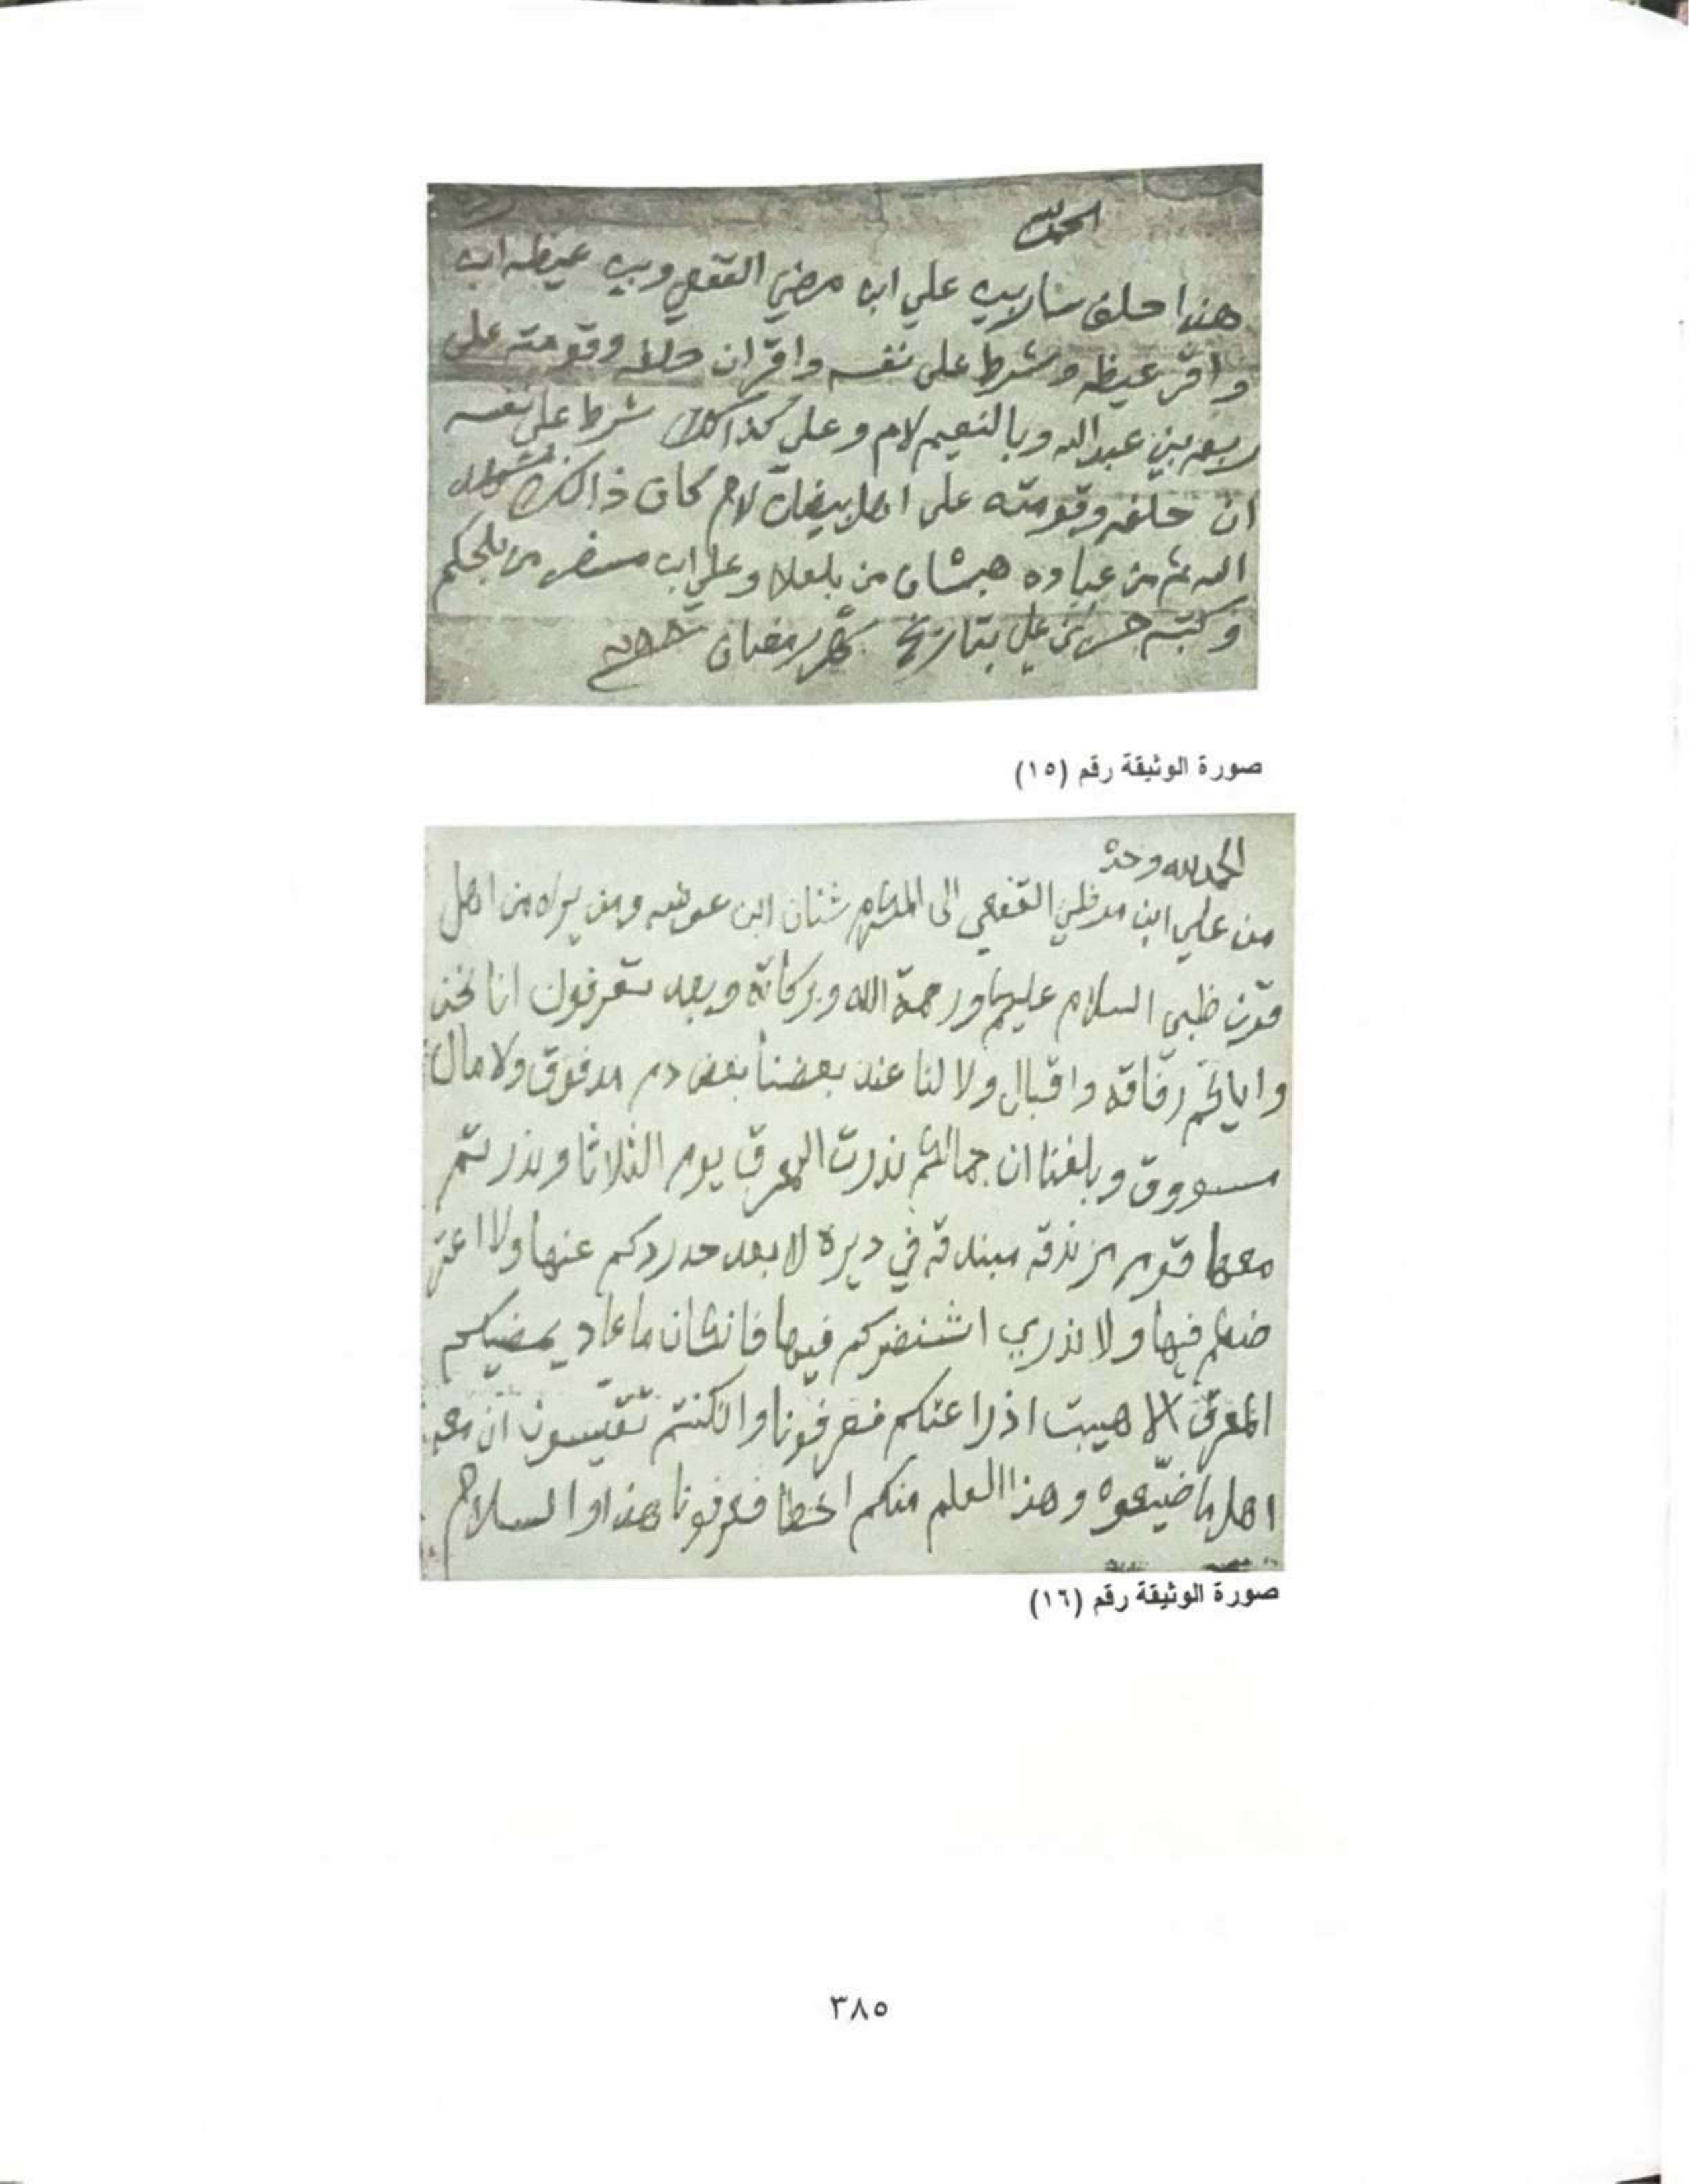 الحمد لله
هذا حلف سار بين علي ابن مرضي القفعي وبين عيظه ابن
واقر عيظه وشرط على نفسه واقر ان حلفه وقومته على
ربيعه بني عبدالله وبالنعيم لام وعلي كذالك شرط على نفسه
ان حلفه وقومته على اهل بيضان لام كان ذالك
الله ثم من عباده هبشان من بلعلا وعلي ابن مسفر من بلحكم
وكتبه حسن بن علي بتاريخ شهر رمضان
صورة الوثيقة رقم (١٥)
الحمد لله وحده
من علي ابن مرضي القفعي الى المكرم شنان ابن عوضه ومن يراه من اهل
قرن ظبي السلام عليكم ورحمة الله وبركاته وبعد تعرفون انا نحن
واياكم رفاقه واقبال ولا لنا عند بعضنا بعض دم مدفوق ولا مال
مسووق وبلغنا ان جمالكم نذرت المعرق يوم الثلاثا ونذرتم
معها قوم مبندقه في ديرة لا بعد حدرركم عنها ولا اعتر
ضكم فيها ولا ندري اشنضركم فيها فانكان ما عاد يمضيكم
المعرق الا هيبت اذراعنكم فعرفونا وانكنتم تقيسون ان معه
اهل ما ضيعوه وهذا العلم منكم اخطا فعرفونا هذا والسلام
صورة الوثيقة رقم (١٦)
٣٨٥